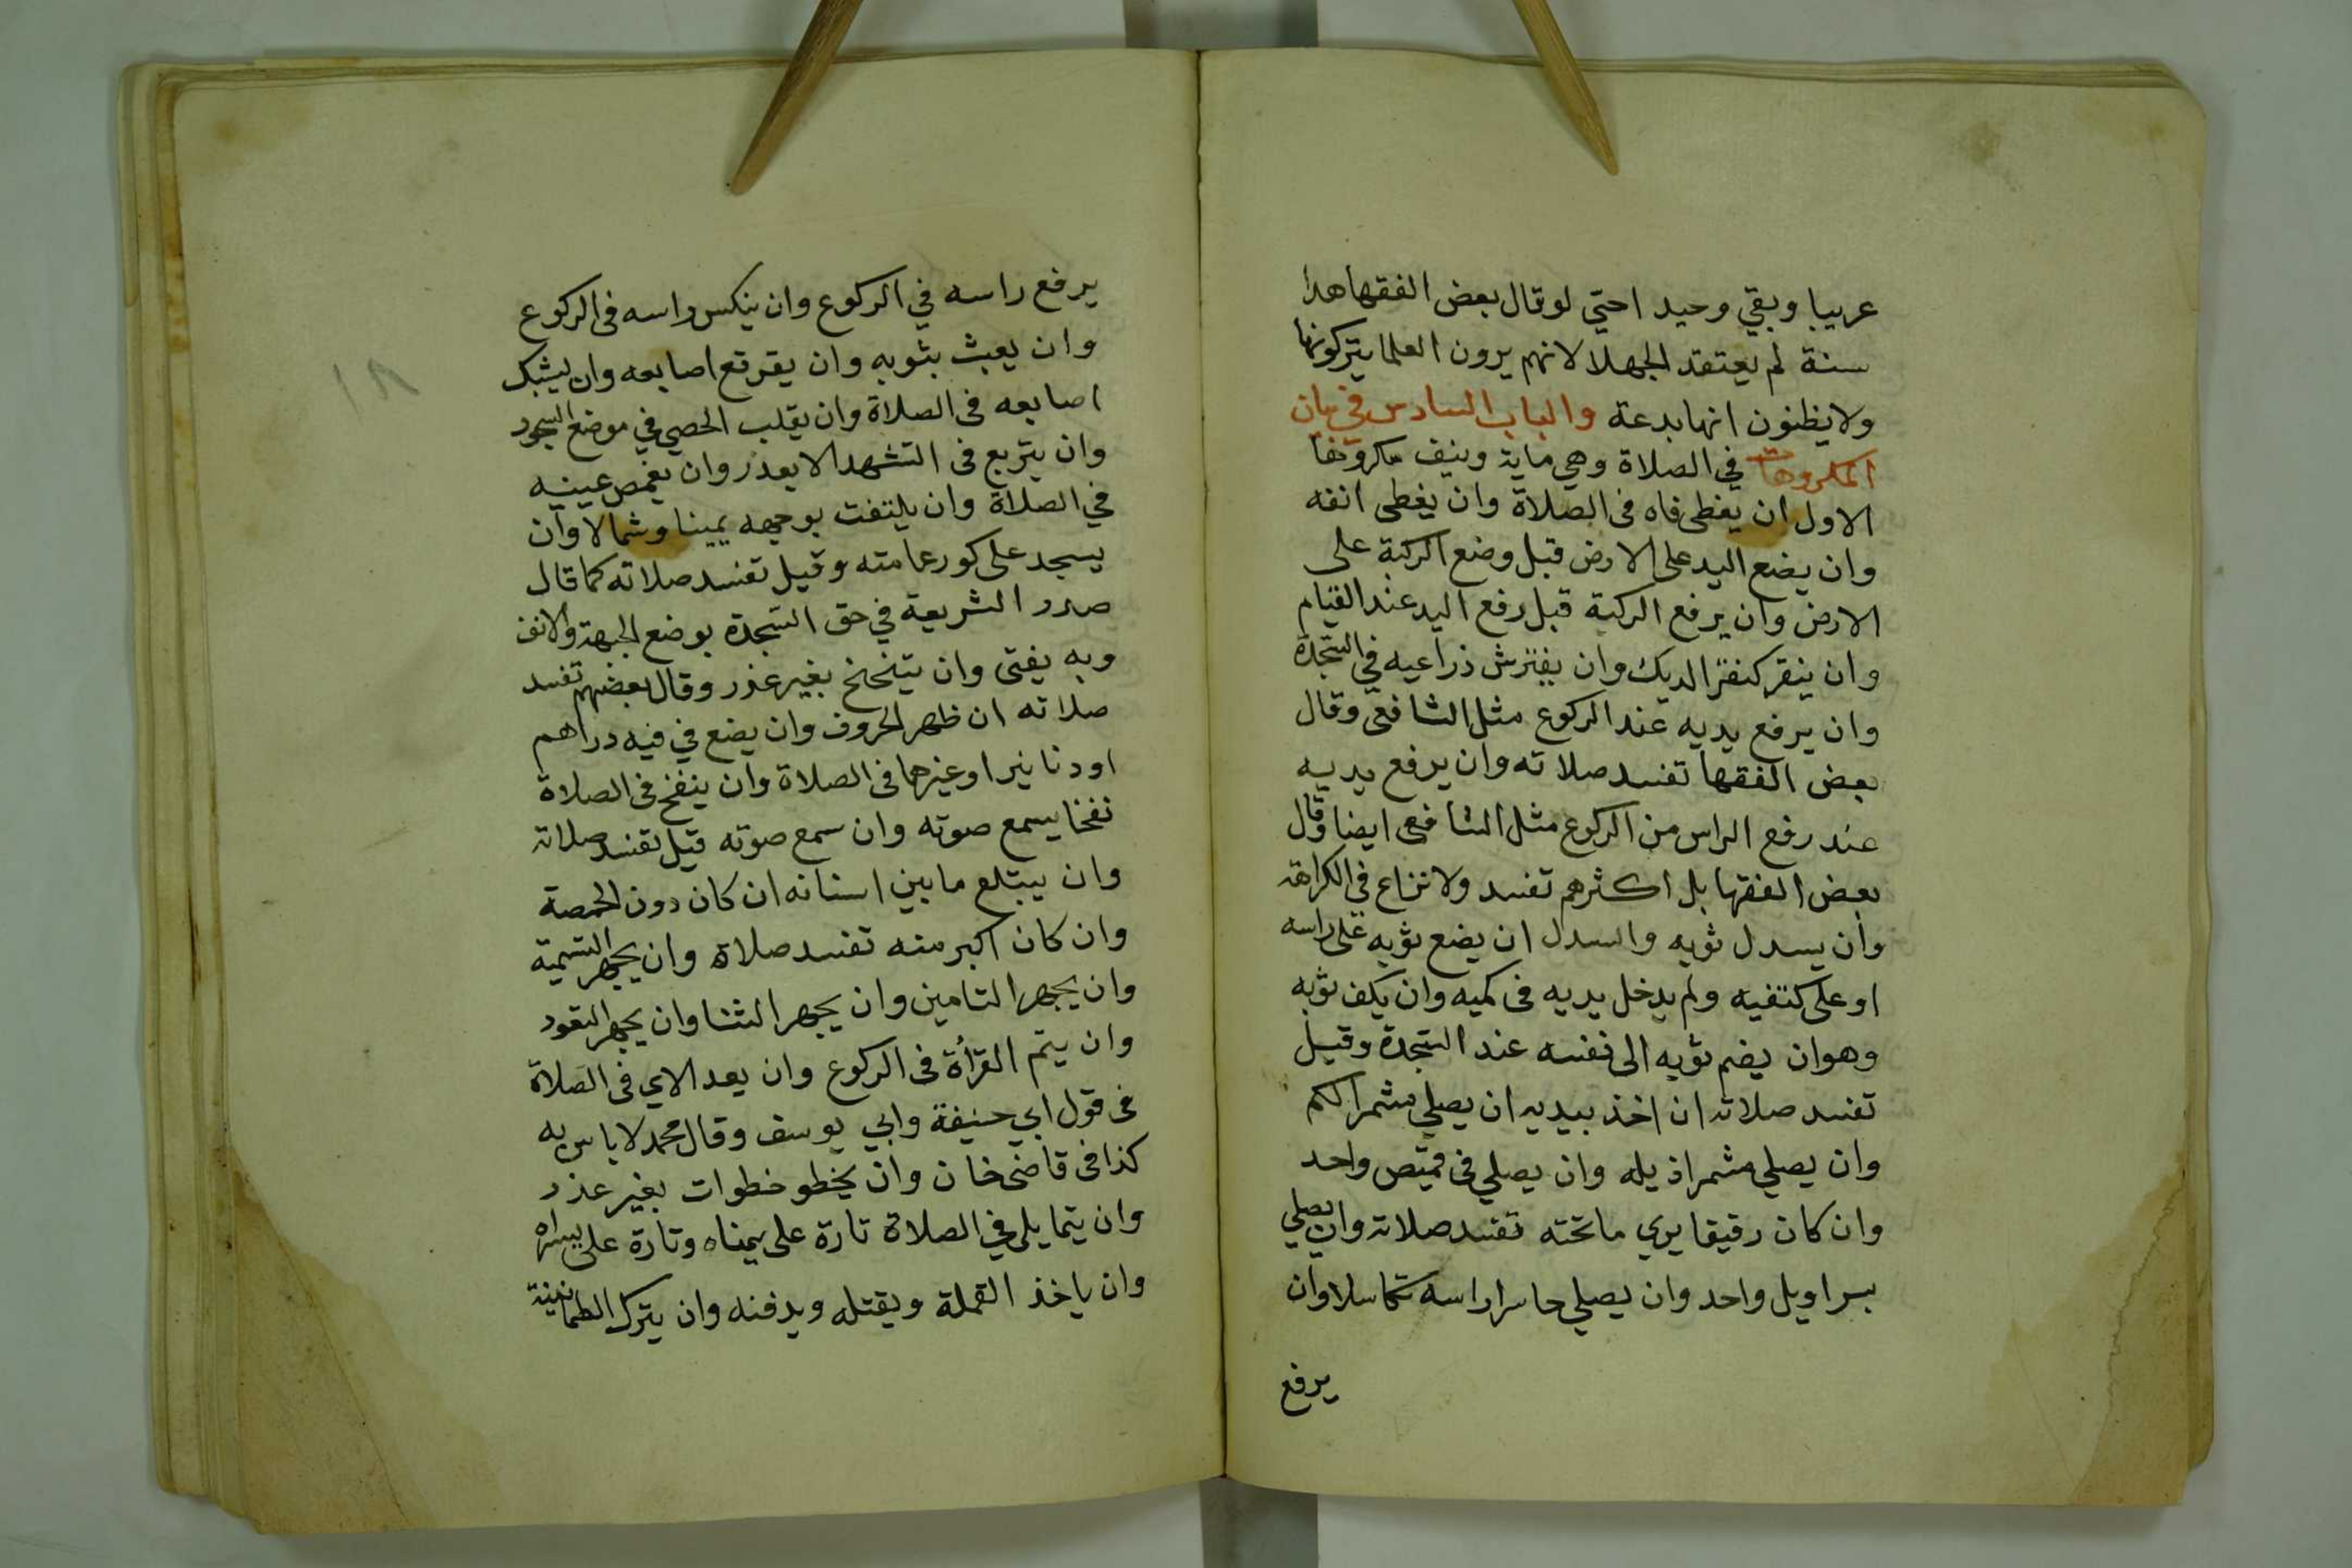 عريبا وبقي وحيد احتي لوقال بعض الفقها هذا
سنة لم يعتقد الجهلا لانهم يرون العلما يتركونها
ولا يظنون انها بدعة والباب السادس في بيان
المكروهات في الصلاة وهي ماية ونيف مكروها
الاول ان يغطى فاه فى الصلاة وان يغطى انفه
وان يضع اليد على الارض قبل وضع الركبة على
الارض وان يرفع الركبة قبل رفع اليد عند القيام
وان ينقر كنقر الديك وان يفترش ذراعيه في السجدة
وان يرفع يديه عند الركوع مثل الشافعى وقال
بعض الفقها تفسد صلاته وان يرفع يديه
عند رفع الراس من الركوع مثل الشافعى ايضا وقال
بعض الفقها بل اكثرهم تفسد ولا نزاع في الكراهة
وان يسدل ثوبه والسدل ان يضع ثوبه على راسه
او على كتفيه ولم يدخل يديه فى كميه وان يكف ثوبه
وهوان يضم ثوبه الى نفسه عند السجدة وقيل
تفسد صلاته ان اخذ بيديه ان يصلي مشمرا لكم
وان يصلي مشمرا ذيله وان يصلي فى قميص واحد
وان كان رقيقا يري ماتحته تفسد صلاته وان يصلي
بسراويل واحد وان يصلي حاسرا راسه تكاسلا وان
يرفع
١٨
يرفع راسه في الركوع وان ينكس راسه فى الركوع
وان يعبث بثوبه وان يقرقع اصابعه وان يشبك
اصابعه فى الصلاة وان يقلب الحصي في موضع السجود
وان يتربع فى التشهد الا بعذر وان يغمص عينيه
في الصلاة وان يلتفت بوجهه يمينا وشمالا وان
يسجد على كور عمامته وقيل تفسد صلاته كما قال
صدر الشريعة في حق السجدة بوضع الجبهة والانف
وبه يفتى وان يتنحنح بغير عذر وقال بعضهم تفسد
صلاته ان ظهر الحروف وان يضع في فيه دراهم
او دنانير او غيرها فى الصلاة وان ينفخ فى الصلاة
نفخا يسمع صوته وان سمع صوته قيل تفسد صلاته
وان يبتلع مابين اسنانه ان كان دون الحمصة
وان كان اكبر منه تفسد صلاة وان يجهر التسمية
وان يجهر التامين وان يجهر الثنا وان يجهر التعود
وان يتم القرأة فى الركوع وان يعد الاي فى الصلاة
فى قول ابي حنيفة وابي يوسف وقال محمد لا باس به
كذا فى قاضى خان وان يخطو خطوات بغير عذر
وان يتمايل في الصلاة تارة على يمناه وتارة على يسراه
وان ياخذ القملة ويقتله ويدفنه وان يترك الطمانينة